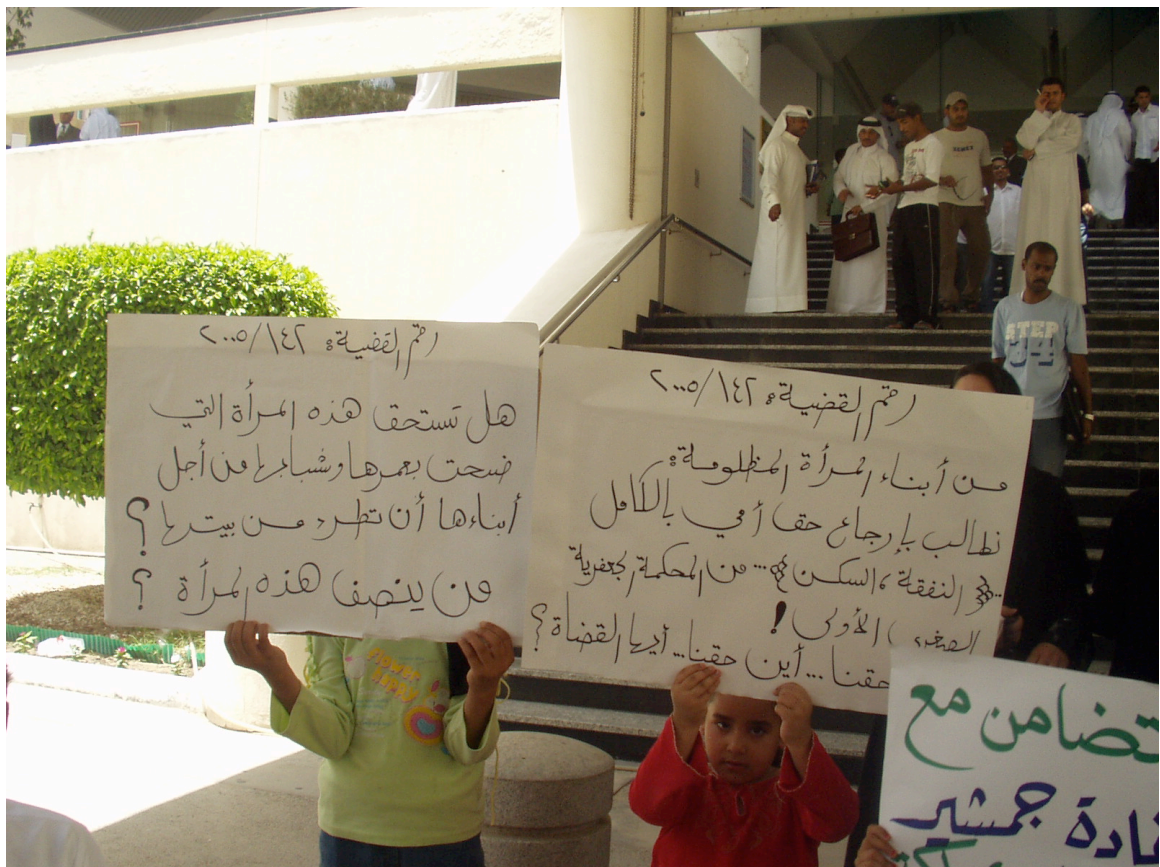 رقم القضية: ٢٠٠٥/١٤٢
هل تستحق هذه المرأة التي
ضحت بعمرها وشبابها من أجل
أبناءها أن تطرد من بيتها؟
من ينصف هذه المرأة ؟
رقم القضية: ٢٠٠٥/١٤٢
من أبناء المرأة المظلومة:
نطالب بإرجاع حق أمي بالكامل
النفقة، السكن ... من المحكمة الجعفرية
الصغرى الأولى!
حقنا ... أين حقنا.. أيها القضاة؟
تضامن مع
غادة جمشير
STEP